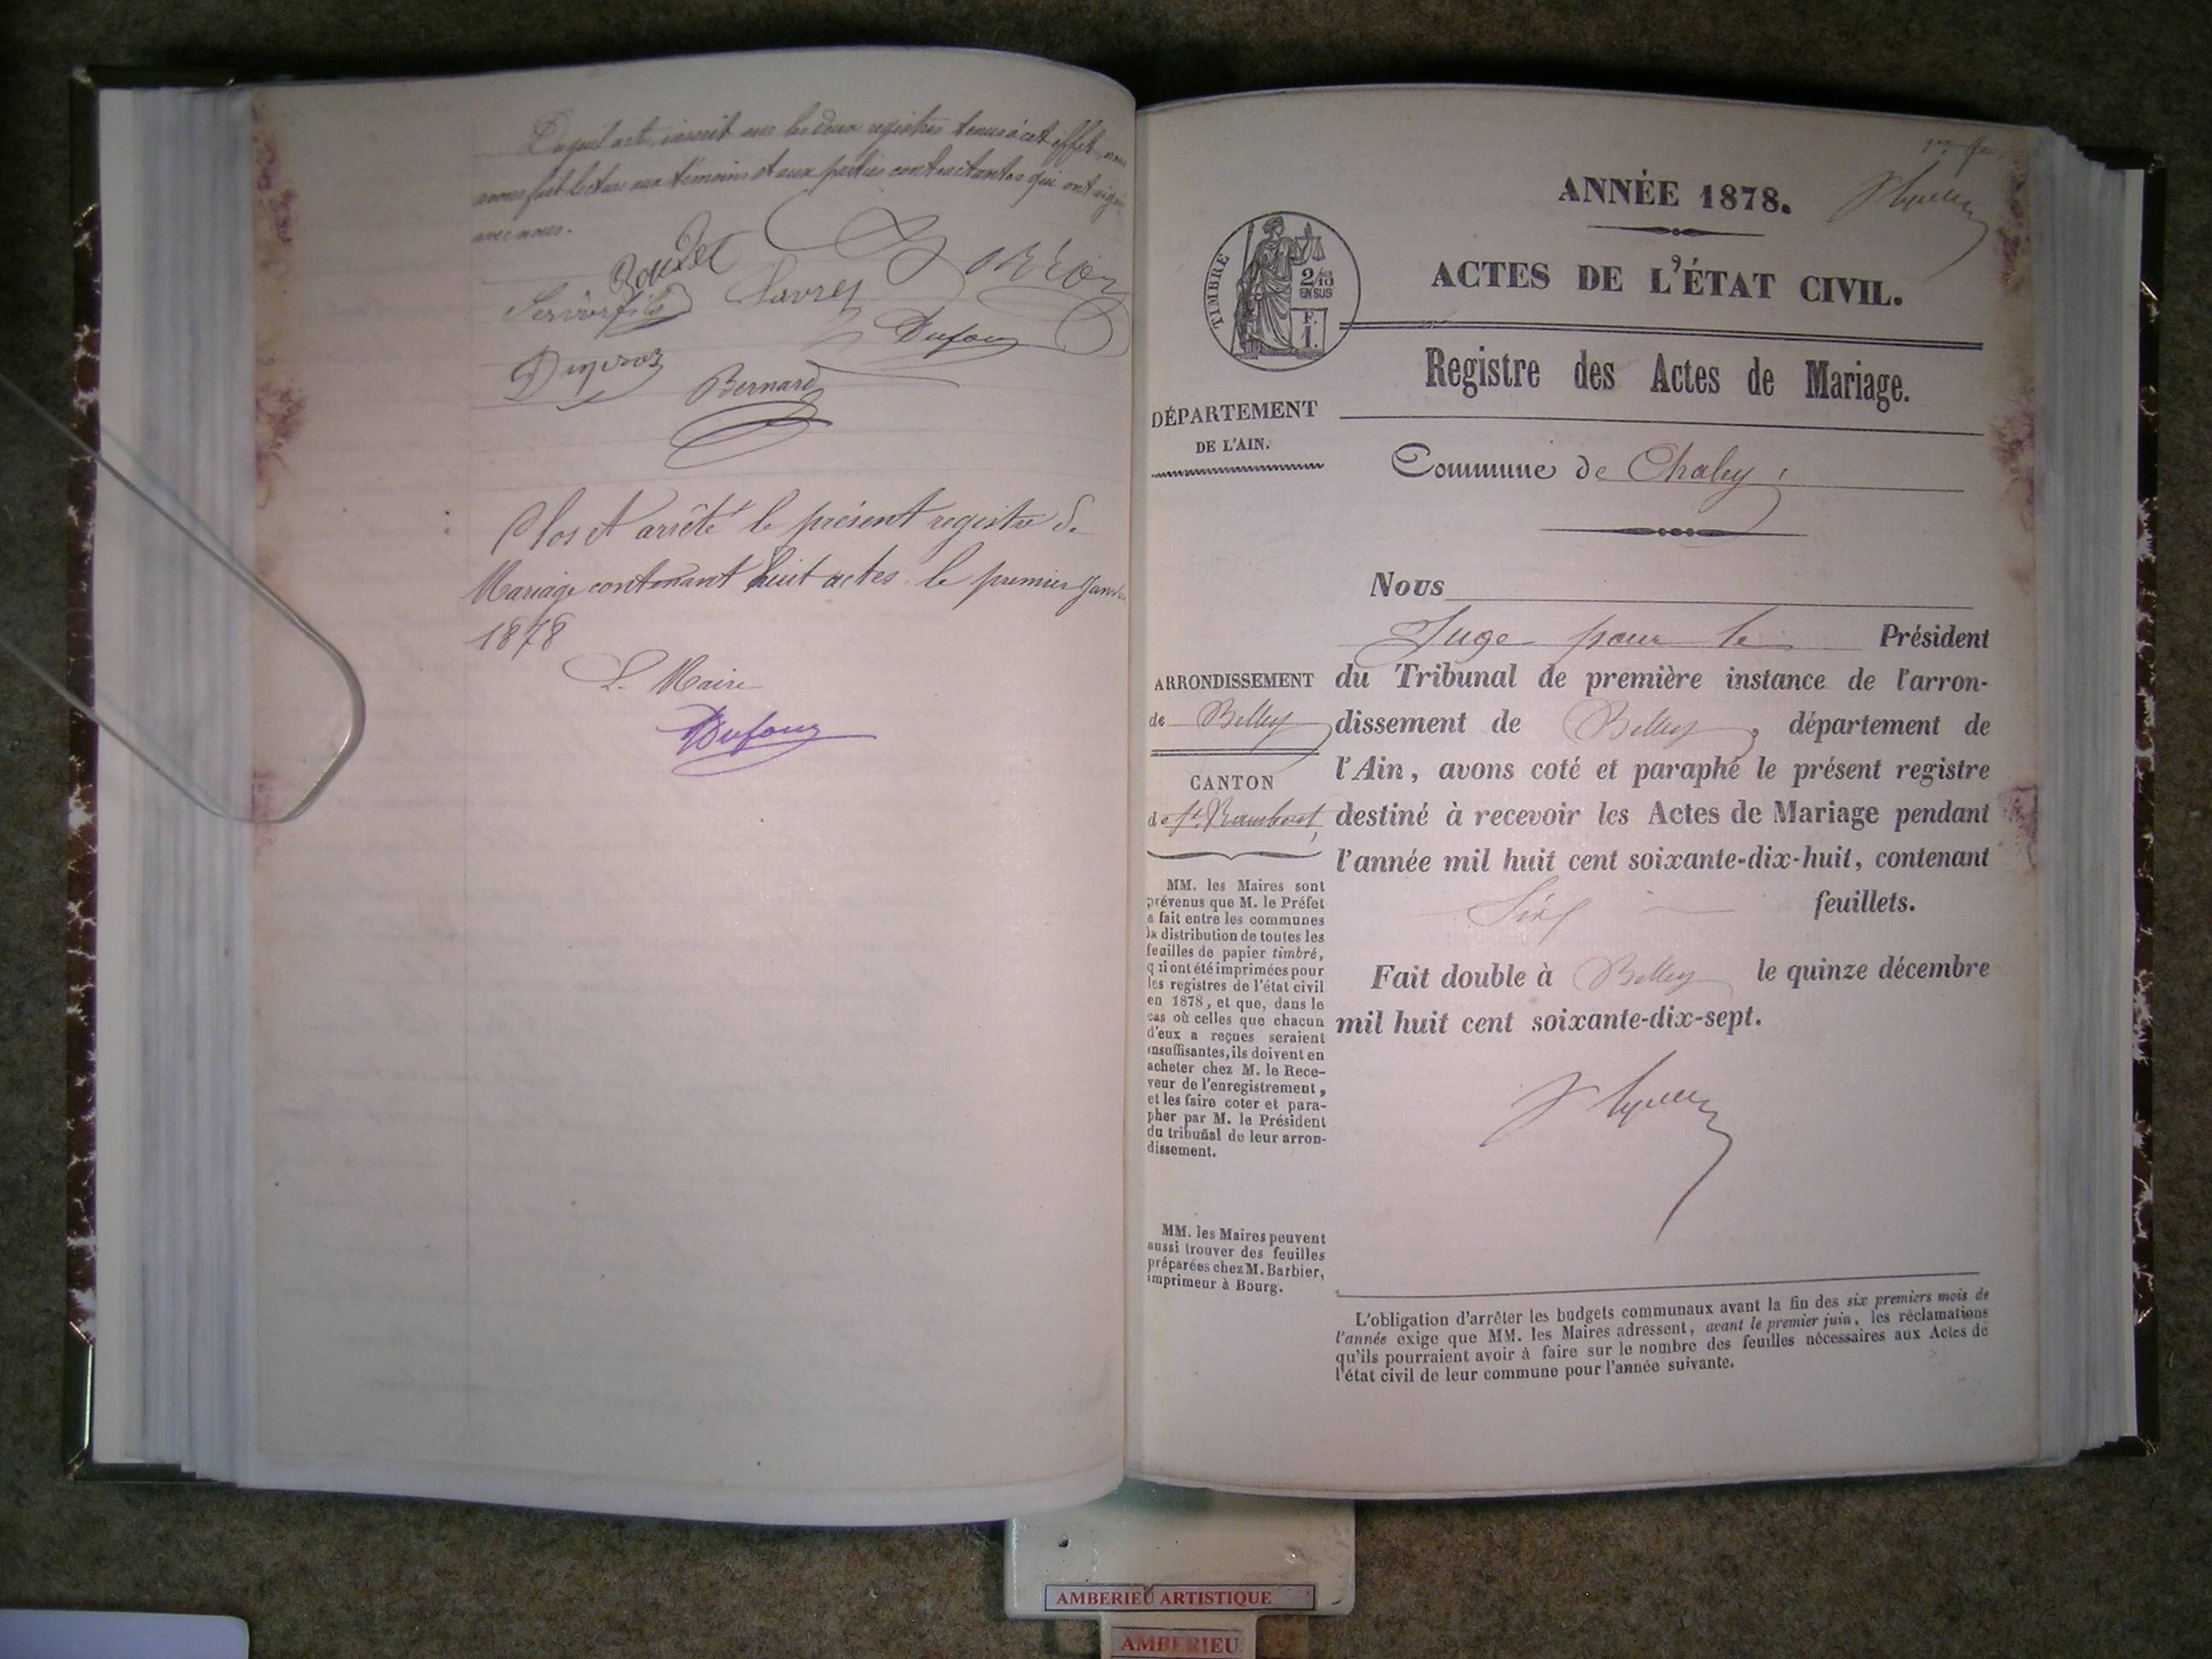 Duquel acte, inscrit sur les deux registres tenus à cet effet, nous
avons fait lecture aux témoins et aux parties contractantes qui ont signé
avec nous.
Dufour
Bernard
Clos et arrêté le présent registre de
Mariage contenant huit actes le premier Janvier
1878
Le Maire
Dufour
ANNÉE 1878.
ACTES DE L'ÉTAT CIVIL.
TIMBRE
2/10
EN SUS
F.
1.
Registre des Actes de Mariage.
DÉPARTEMENT
DE L'AIN.
Commune de Chaley
Nous
Juge pour le Président
du Tribunal de première instance de l'arron-
dissement de Belley, département de
l'Ain, avons coté et paraphé le présent registre
destiné à recevoir les Actes de Mariage pendant
l'année mil huit cent soixante-dix-huit, contenant
feuillets.
Fait double à Belley le quinze décembre
mil huit cent soixante-dix-sept.
ARRONDISSEMENT
de Belley
CANTON
de St. Rambert
MM. les Maires sont
prévenus que M. le Préfet
a fait entre les communes
la distribution de toutes les
feuilles de papier timbré,
qui ont été imprimées pour
les registres de l'état civil
en 1878, et que, dans le
cas où celles que chacun
d'eux a reçues seraient
insuffisantes, ils doivent en
acheter chez M. le Rece-
veur de l'enregistrement,
et les faire coter et para-
pher par M. le Président
du tribunal de leur arron-
dissement.
MM. les Maires peuvent
aussi trouver des feuilles
préparées chez M. Barbier,
imprimeur à Bourg.
L'obligation d'arrêter les budgets communaux avant la fin des six premiers mois de
l'année exige que MM. les Maires adressent, avant le premier juin, les réclamations
qu'ils pourraient avoir à faire sur le nombre des feuilles nécessaires aux Actes de
l'état civil de leur commune pour l'année suivante.
AMBERIEU ARTISTIQUE
AMBERIEU